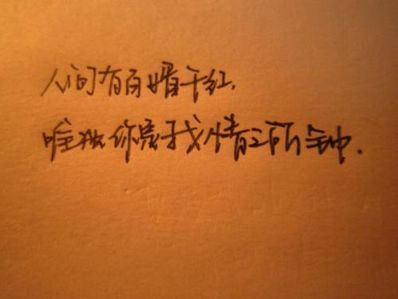 人间有百媚千红,
唯独你是我情之所钟.